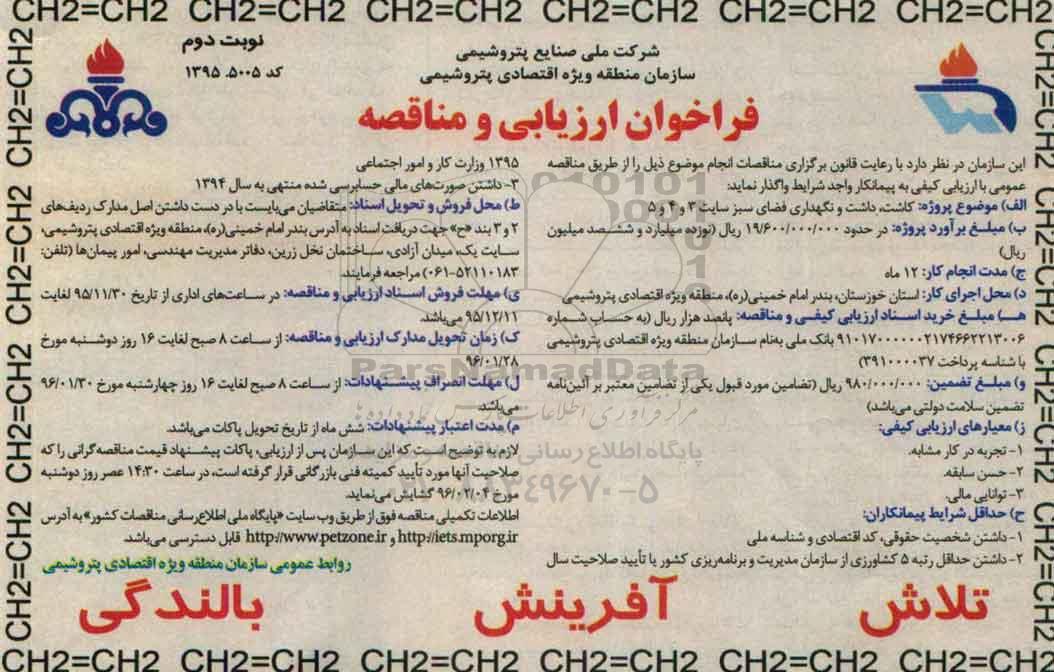 CH2=CH2 CH2=CH2 CH2=CH2 CH2=CH2 CH2=CH2 CH2=CH2
نوبت دوم
کد ۵۰۰۵. ۱۳۹۵
شرکت ملی صنایع پتروشیمی
سازمان منطقه ویژه اقتصادی پتروشیمی
فراخوان ارزیابی و مناقصه
این سازمان در نظر دارد با رعایت قانون برگزاری مناقصات انجام موضوع ذیل را از طریق مناقصه
عمومی با ارزیابی کیفی به پیمانکار واجد شرایط واگذار نماید:
الف) موضوع پروژه: کاشت، داشت و نگهداری فضای سبز سایت ۳ و ۴ و ۵
ب) مبلغ برآورد پروژه: در حدود ۱۹/۶۰۰/۰۰۰/۰۰۰ ریال (نوزده میلیارد و ششصد میلیون
ریال)
ج) مدت انجام کار: ۱۲ ماه
د) محل اجرای کار: استان خوزستان، بندر امام خمینی(ره)، منطقه ویژه اقتصادی پتروشیمی
هـ) مبلغ خرید اسناد ارزیابی کیفی و مناقصه: پانصد هزار ریال (به حساب شماره
۹۱۰۱۷۰۰۰۰۰۰۲۱۷۴۶۶۲۲۱۳۰۰۶ بانک ملی به‌نام سازمان منطقه ویژه اقتصادی پتروشیمی
با شناسه پرداخت ۳۹۱۰۰۰۰۳۷)
و) مبلغ تضمین: ۹۸۰/۰۰۰/۰۰۰ ریال (تضامین مورد قبول یکی از تضامین معتبر بر آئین‌نامه
تضمین سلامت دولتی می‌باشد)
ز) معیارهای ارزیابی کیفی:
۱- تجربه در کار مشابه.
۲- حسن سابقه.
۳- توانایی مالی.
ح) حداقل شرایط پیمانکاران:
۱- داشتن شخصیت حقوقی، کد اقتصادی و شناسه ملی
۲- داشتن حداقل رتبه ۵ کشاورزی از سازمان مدیریت و برنامه‌ریزی کشور یا تأیید صلاحیت سال
۱۳۹۵ وزارت کار و امور اجتماعی
۳- داشتن صورت‌های مالی حسابرسی شده منتهی به سال ۱۳۹۴
ط) محل فروش و تحویل اسناد: متقاضیان می‌بایست با در دست داشتن اصل مدارک ردیف‌های
۲ و ۳ بند «ح» جهت دریافت اسناد به آدرس بندر امام خمینی(ره)، منطقه ویژه اقتصادی پتروشیمی،
سایت یک، میدان آزادی، ساختمان نخل زرین، دفاتر مدیریت مهندسی، امور پیمان‌ها (تلفن:
۰۶۱-۵۲۱۱۰۱۸۳) مراجعه فرمایند.
ی) مهلت فروش اسناد ارزیابی و مناقصه: در ساعت‌های اداری از تاریخ ۹۵/۱۱/۳۰ لغایت
۹۵/۱۲/۱۱ می‌باشد.
ک) زمان تحویل مدارک ارزیابی و مناقصه: از ساعت ۸ صبح لغایت ۱۶ روز دوشنبه مورخ
۹۶/۰۱/۲۸
ل) مهلت انصراف پیشنهادات: از ساعت ۸ صبح لغایت ۱۶ روز چهارشنبه مورخ ۹۶/۰۱/۳۰
می‌باشد
م) مدت اعتبار پیشنهادات: شش ماه از تاریخ تحویل پاکات می‌باشد.
لازم به توضیح است که این سازمان پس از ارزیابی، پاکات پیشنهاد قیمت مناقصه‌گرانی را که
صلاحیت آنها مورد تأیید کمیته فنی بازرگانی قرار گرفته است، در ساعت ۱۴:۳۰ عصر روز دوشنبه
مورخ ۹۶/۰۲/۰۴ گشایش می‌نماید.
اطلاعات تکمیلی مناقصه فوق از طریق وب سایت «پایگاه ملی اطلاع‌رسانی مناقصات کشور» به آدرس
http://iets.mporg.ir و http://www.petzone.ir قابل دسترسی می‌باشد.
روابط عمومی سازمان منطقه ویژه اقتصادی پتروشیمی
تلاش آفرینش بالندگی
ParsNamadData
مرکز فرآوری اطلاعات پارس نماد داده‌ها
پایگاه اطلاع رسانی
CH2=CH2 CH2=CH2 CH2=CH2 CH2=CH2 CH2=CH2 CH2=CH2